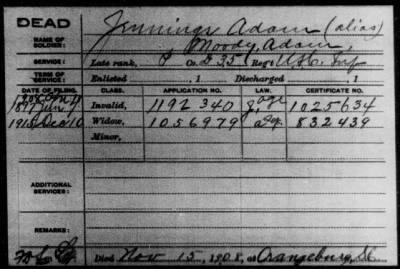 DEAD
NAME OF SOLDIER: Jennings Adam (alias)
Moody, Adam,
SERVICE: Late rank, P Co. D 35 Reg't U.S.C. Inf
TERM OF SERVICE: Enlisted , 1 Discharged , 1
DATE OF FILING. CLASS. APPLICATION NO. LAW. CERTIFICATE NO.
Invalid, 1192340 age 1025634
1918, Dec 10 Widow, 1056979 832439
Minor,
ADDITIONAL SERVICES:
REMARKS:
Died Nov 15, 1908, at Orangeburg, S.C.